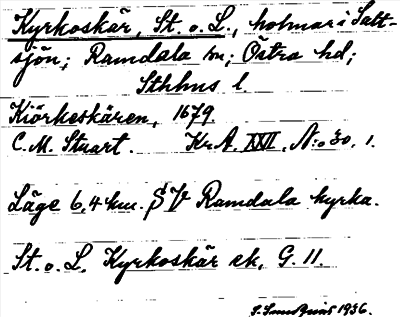 Kyrkoskär, St. o. L., holmar i Salt-
sjön; Ramdala sn; Östra hd;
Sthhns l.
Kiörkeskären, 1679.
C. M. Stuart. Kr A. XXII, N:o 30, 1.
Läge 6,4 km. SV Ramdala kyrka.
St. o. L. Kyrkoskär ek, G. 11.
1936.